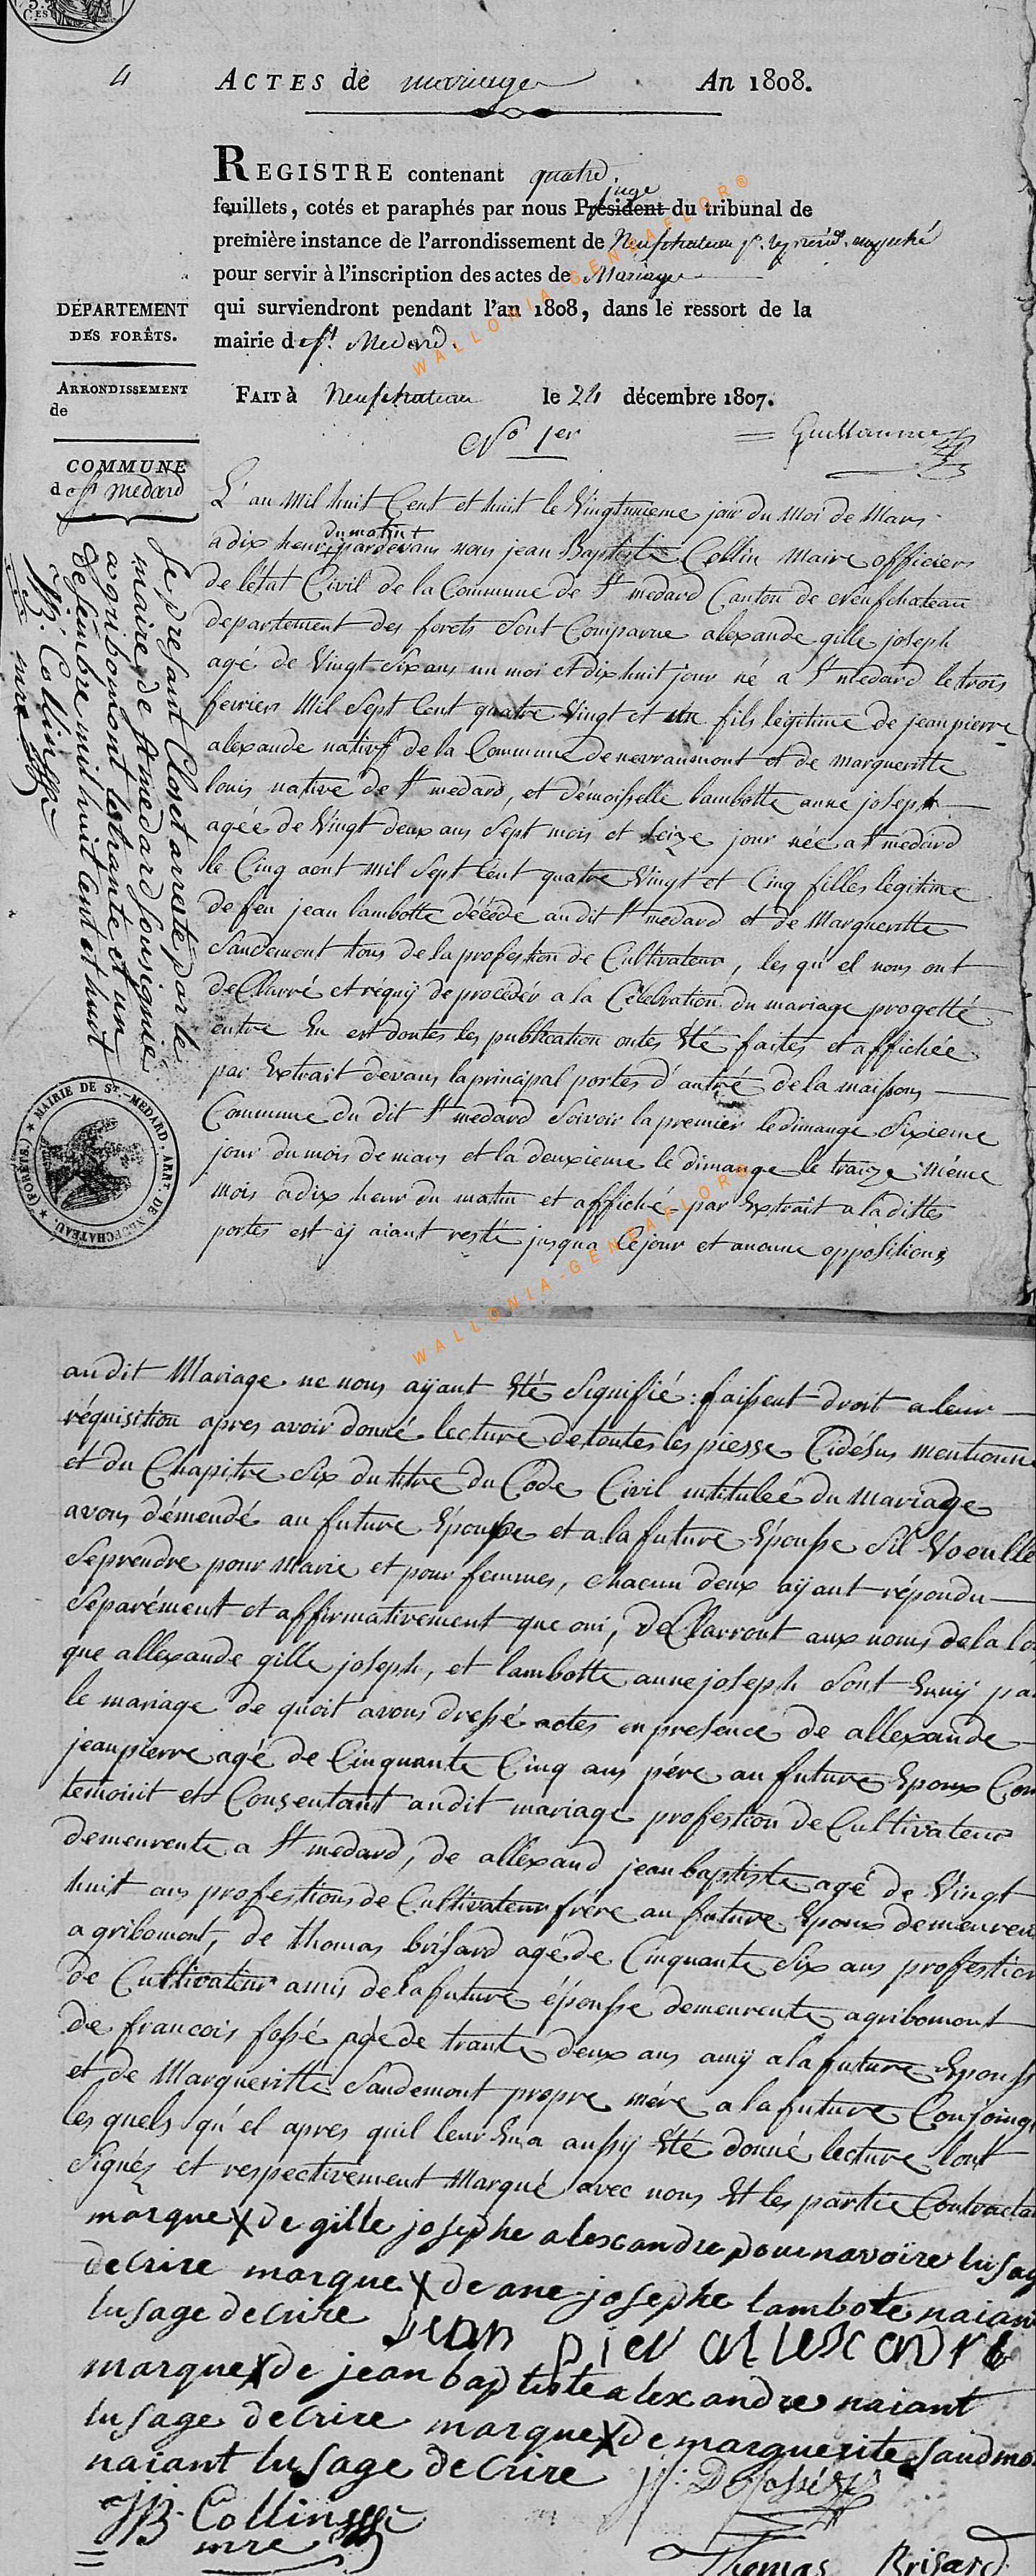 4 ACTES de mariage An 1808.
REGISTRE contenant quatre
juge
feuillets, cotés et paraphés par nous Président du tribunal de
première instance de l'arrondissement de Neufchateau
pour servir à l'inscription des actes de Mariage
qui surviendront pendant l'an 1808, dans le ressort de la
mairie de St. Medard.
DÉPARTEMENT
DES FORÊTS.
ARRONDISSEMENT
de
COMMUNE
de St medard
FAIT à Neufchateau le 24 décembre 1807.
No 1er Guillaume
L'an mil huit Cent et huit le Vingtunieme jour du Moi de Mars
du matint
a dix heur pardevans nous jean Baptiste Collin Maire officiers
de letat Civil de la Commune de St medard Canton de Neufchateau
departement des forets Sont Comparue alexande gille joseph
agé de Vingt Six ans un moi et dix huit jour né a St medard le trois
fevriers Mil Sept Cent quatre Vingt et un fils légitime de jean pierre
alexande natif de la Commune de nevraumont et de margueritte
louis native de St medard, et démoisselle lambotte anne joseph
agée de Vingt deux ans Sept mois et Seize jour née a St medard
le Cinq aout mil Sept Cent quatre Vingt et Cinq filles legitime
de feu jean lambotte décédé au dit St medard et de Margueritte
Sandemont tous de la profestion de Cultivateur, les qu'el nous ont
deCllarré et réquij de procéder a la Célébration du mariage progetté
entre Eu est dontes les publication ontes Eté faites et affichée
par Extrait devans la principal portes d'antré de la maissons
Commune du dit St medard Soivoir la premier le dimange Sixieme
jour du mois de mars et la deuxieme le dimange le traize même
mois a dix heur du matin et affiché par Extrait a la dittes
portes est ij aiant resté jusqua Ce jour et aucune oppositions
Le present Clos et arresté par le
maire de St medard Sousignie
a gribomont le trante et un
desembre mil huit Cent et huit
J.B. Collin
mre
MAIRIE DE ST.-MEDARD, ARR. DE NEUFCHATEAU. (FORÊTS.)
au dit Mariage ne nous aÿant Eté Signifié: faissent droit a leur
réquisition apres avoir donné lecture de toutes les piesse Cidésus mentionn
et du Chapitre Six du titre du Code Civil intitulée du Mariage
avons démendé au future Epousse et a la future Epousse Sil Voeulle
Seprendre pour Marie et pour femmes, chacun deux aÿant répondu
Séparément et affirmativement que oui, deCllarront aux noms de la lo
que allexande gille joseph, et lambotte anne joseph Sont Eunij pa
le mariage de quoit avons dressé actes en presence de allexande
jean pierre agé de Cinquante Cinq ans pére au future Epoux Com
temoint et Consentant au dit mariage profestion de Cultivateur
demeurente a St medard, de alléxand jean baptiste agé de Vingt
huit ans profestions de Cultivateur frére au future Epoux demeuren
a gribomont, de thomas brisard agé de Cinquante Six ans profestion
de Cultivateur amis de la future épousse demeurente a gribomont
de francois fossé agé de trante deux ans amij a la future Epouss
et de Margueritte Sandemont propre mére a la future Conjoing
les quels qu'el apres quil leur En a aussij Eté donné lecture lont
Signéz et respectivement Marqué avec nous Et les partie Contracta
marque X de gille josephe alexandre pour navoire lusag
decrire marque X de ane josephe lambote naian
lusage decrire Jean pier allexandre
marque X de jean baptiste alexandre naiant
lusage decrire marque X de marguerite sandmo
naiant lusage decrire f: Defossé
JB. Collin
mre
Thomas Brisard
WALLONIA-GENEAFLOR®
WALLONIA-GENEAFLOR®